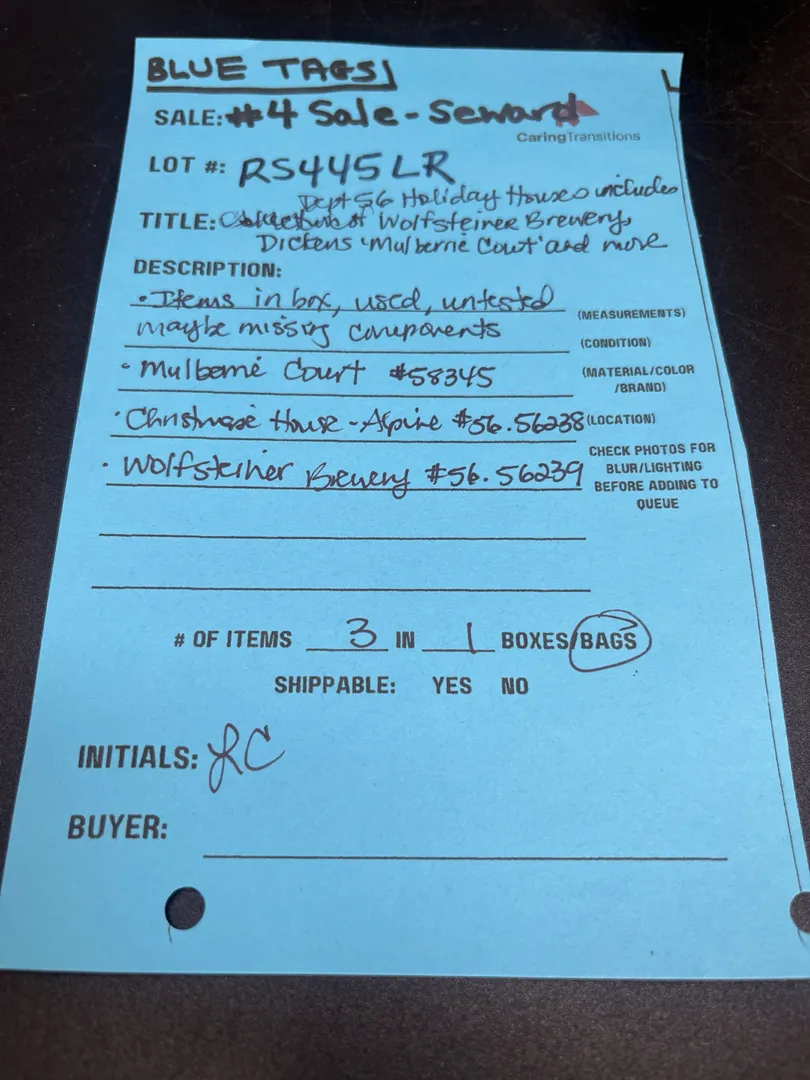 BLUE TAGS
SALE: #4 Sale - Seward
CaringTransitions
LOT #: RS445LR
Dept 56 Holiday Houses includes
TITLE: Wolfsteiner Brewery,
Dickens 'Mulberrie Court' and more
DESCRIPTION:
• Items in box, used, untested
(MEASUREMENTS)
maybe missing components
(CONDITION)
• Mulberrie Court #58345
(MATERIAL/COLOR
/BRAND)
• Christmas House - Alpine #56.56238
(LOCATION)
• Wolfsteiner Brewery #56.56239
CHECK PHOTOS FOR
BLUR/LIGHTING
BEFORE ADDING TO
QUEUE
# OF ITEMS 3 IN 1 BOXES/BAGS
SHIPPABLE: YES NO
INITIALS: LC
BUYER: